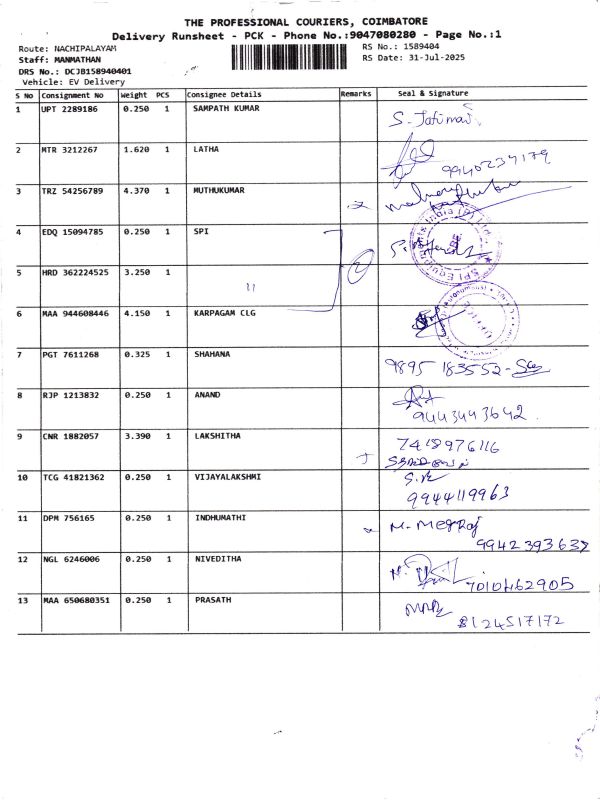 THE PROFESSIONAL COURIERS, COIMBATORE
Delivery Runsheet - PCK - Phone No.:9047080280 - Page No.:1
Route: NACHIPALAYAM
RS No.: 1589404
Staff: MANMATHAN
RS Date: 31-Jul-2025
DRS No.: DCJB158940401
Vehicle: EV Delivery
S No Consignment No Weight PCS Consignee Details Remarks Seal & Signature
1 UPT 2289186 0.250 1 SAMPATH KUMAR
2 MTR 3212267 1.620 1 LATHA 9940234179
3 TRZ 54256789 4.370 1 MUTHUKUMAR
4 EDQ 15094785 0.250 1 SPI
5 HRD 362224525 3.250 1 11 2
SPI Equipments India (P) Ltd.
6 MAA 944608446 4.150 1 KARPAGAM CLG
OFFICE
7 PGT 7611268 0.325 1 SHAHANA 9895 183552
8 RJP 1213832 0.250 1 ANAND
9443443642
9 CNR 1882057 3.390 1 LAKSHITHA 7418976116
10 TCG 41821362 0.250 1 VIJAYALAKSHMI
9944119963
11 DPM 756165 0.250 1 INDHUMATHI
12 NGL 6246006 0.250 1 NIVEDITHA
7010462905
13 MAA 650680351 0.250 1 PRASATH
8124517172